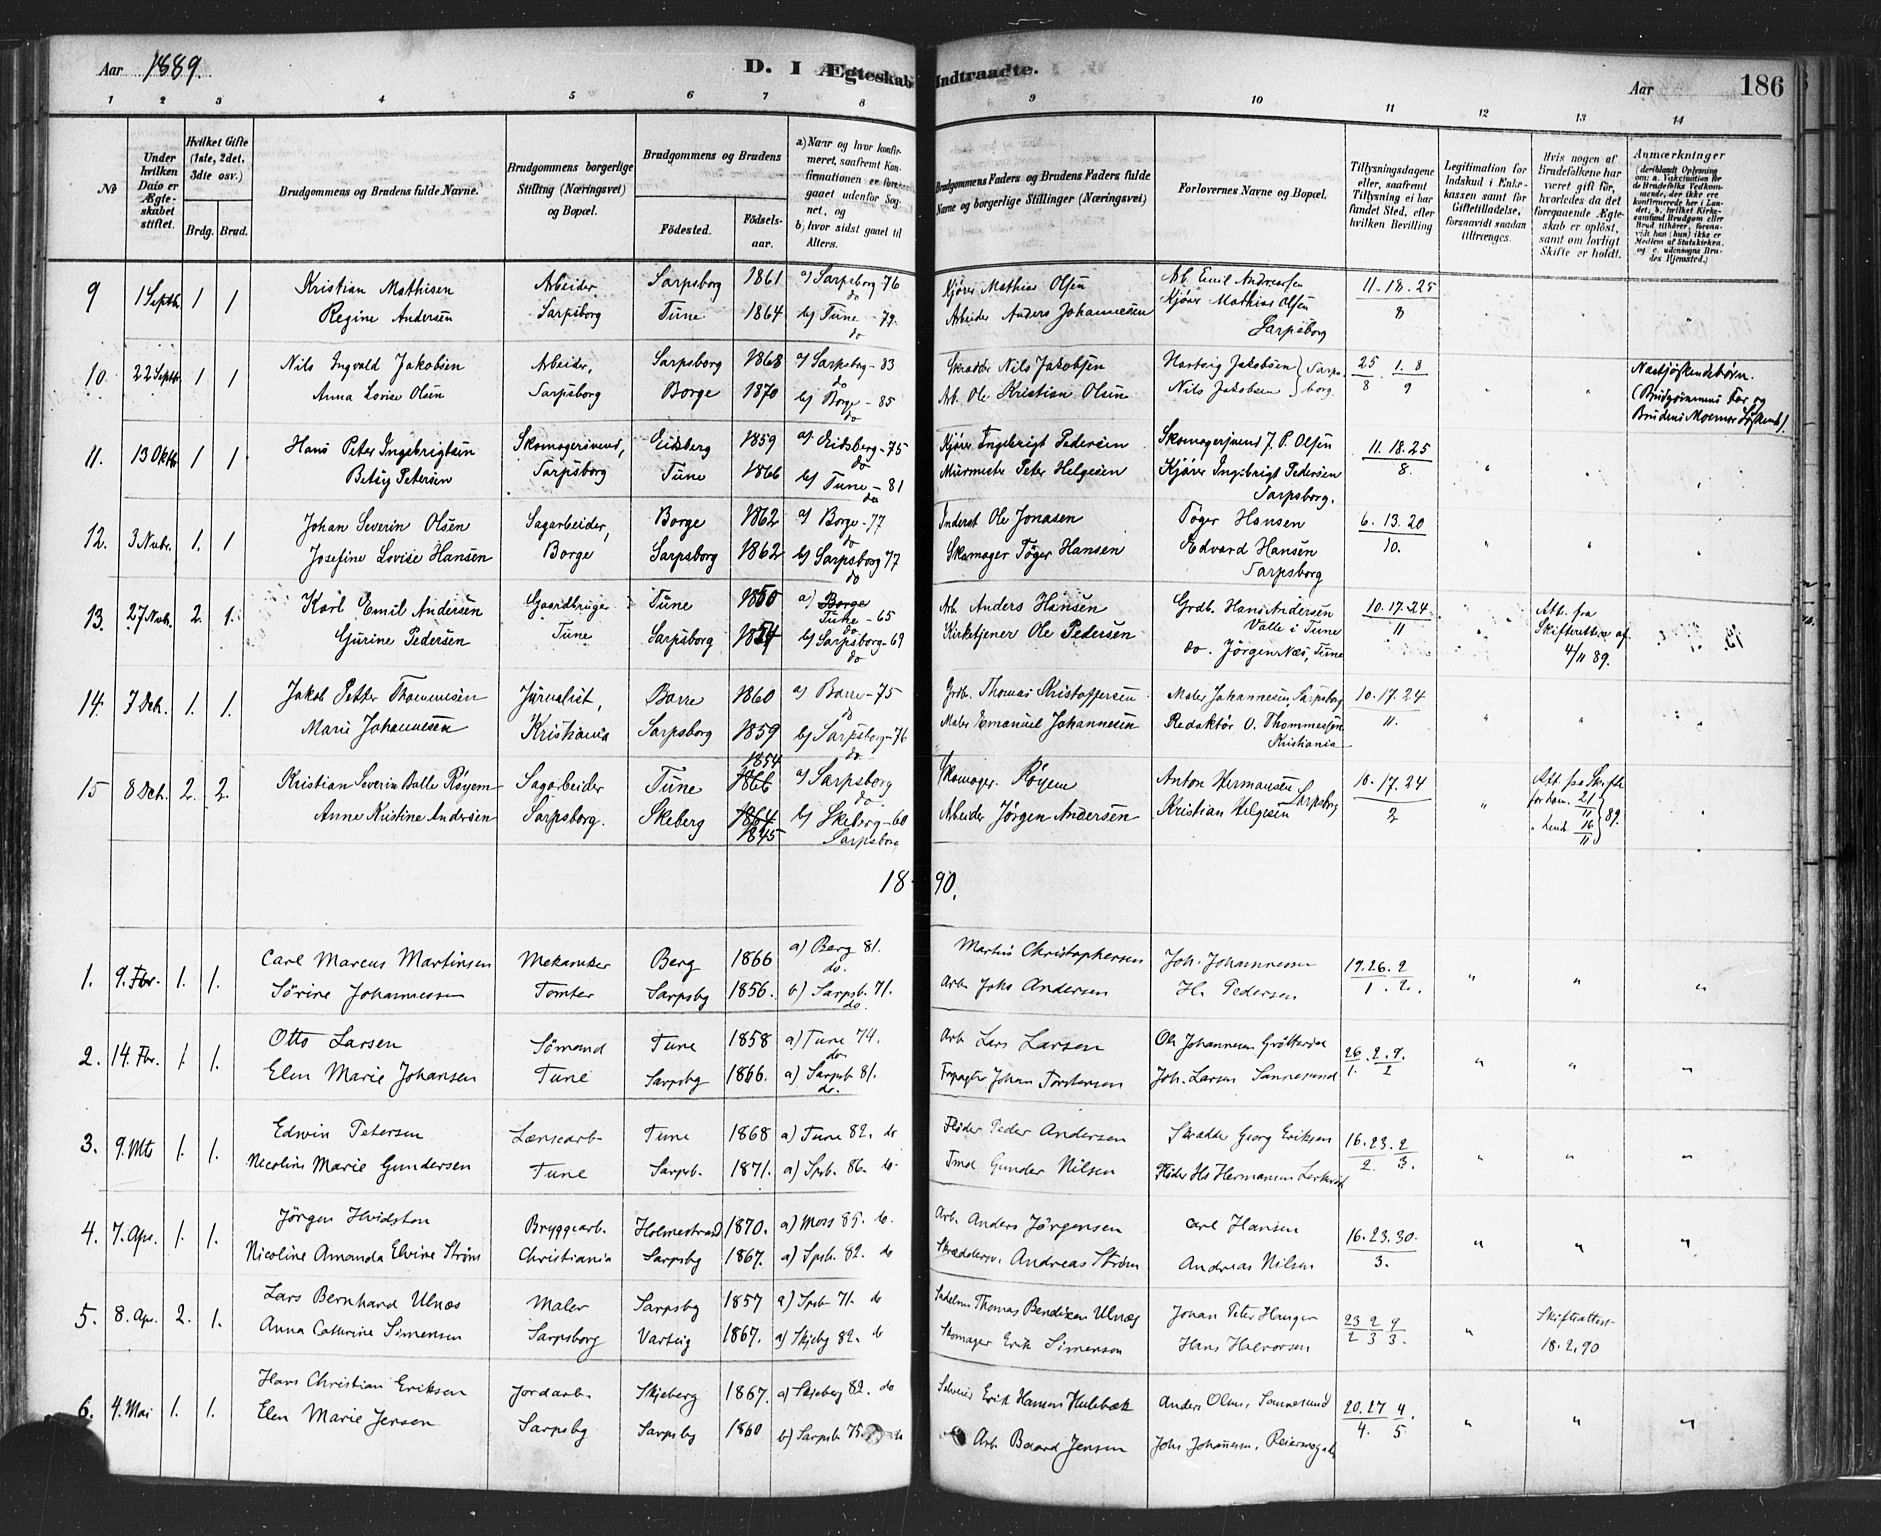 Aar 1889. D. I Ægteskab Indtraadte. Aar 186
1 2 3 4 5 6 7 8 9 10 11 12 13 14
No
Under hvilken Dato er Ægteskabet stiftet.
Hvilket Gifte (1ste, 2det, 3die osv.)
Brdg. Brud.
Brudgommens og Brudens fulde Navne.
Brudgommens borgerlige Stilling (Næringsvei) og Bopæl.
Brudgommens og Brudens
Fødested. Fødselsaar.
a) Naar og hvor konfirmeret, saafremt Konfirmationen er foregaaet udenfor Sognet, og
b) hvor sidst gaaet til Alters.
Brudgommens Faders og Brudens Faders fulde Navne og borgerlige Stillinger (Næringsvei)
Forlovernes Navne og Bopæl.
Tillysningsdagene eller, saafremt Tillysning ei har fundet Sted, efter hvilken Bevilling
Legitimation for Indskud i Enkekassen samt for Giftetilladelse, forsaavidt saadan tiltrænges.
Hvis nogen af Brudefolkene har været gift før, hvorledes da det foregaaende Ægteskab er opløst, samt om lovligt Skifte er holdt.
Anmærkninger
9 1 Septbr 1 1 Kristian Mathisen Arbeider, Sarpsborg 1861 a) Sarpsborg 76 do Kjører Mathias Olsen Arb. Emil Andreassen 11. 18. 25
Regine Andersen Sarpsborg Tune 1864 b) Tune - 79 do Arbeider Anders Johannesen Kjører Mathias Olsen 8
Sarpsborg
10. 22 Septbr 1 1 Nils Ingvald Jakobsen Arbeider, Sarpsborg 1868 a) Sarpsborg - 83 do Skrædder Nils Jakobsen Hartvig Jakobsen Sarpsborg 25/8 . 1. 8/9 Næstsøskendebørn.
Anna Lovise Olsen Sarpsborg Borge 1870 b) Borge - 85 do Arb. Ole Kristian Olsen Nils Jakobsen (Brudgommens Far og
Brudens Moer
11. 13 Oktb 1 1 Hans Peter Ingebrigtsen Skomagersvend, Eidsberg 1859 a) Eidsberg - 75 do Kjører Ingebrigt Pedersen Skomagersvend J. P. Olsen 11. 18. 25
Betsy Petersen Sarpsborg Tune 1866 b) Tune - 81 do Murmester Peter Helgesen Kjører Ingebrigt Pedersen 8.
Sarpsborg.
12. 3 Nvbr. 1. 1 Johan Severin Olsen Sagarbeider, Borge 1862 a) Borge - 77 do Inderst Ole Jonasen Töger Hansen 6. 13. 20
Josefine Lovise Hansen Borge Sarpsborg 1862 b) Sarpsborg 77 do Skomager Töger Hansen Edvard Hansen 10.
Sarpsborg
13. 27 Nvb. 2. 1. Karl Emil Andersen Gaardbruger Tune 1850 a) Borge Tune - 65 do Arb. Anders Hansen Grdb. Hans Andersen 10. 17. 24 Att. fra
Valle i Tune Skifteretten af
Gurine Pedersen Tune Sarpsborg 1854 b) Sarpsborg - 69 do Kirketjener Ole Pedersen do. Jørgen Næs, Tune 11 4/11 89.
14. 7 Deb. 1. 1. Jakob Petter Thommesen Jurnalist, Borre 1860 a) Borre - 75 do Grdb. Thomas Kristoffersen Maler Johannesen, Sarpsborg 10. 17. 24
Marie Johannesen Kristiania Sarpsborg 1859 b) Sarpsborg - 76 do Maler Emanuel Johannesen Redaktør O. Thommesen 11.
Kristiania
15 8 Deb. 2. 2. Kristian Severin Balle Røyem Sagarbeider Tune 1854 1866 a) Sarpsborg do. Skomager. Røyem Anton Hermansen 10. 17. 24 Att. fra Skifte
for ham. 21/11 89.
Anne Kristine Andersen Sarpsborg. Skeberg 1864 1845 b) Skeberg - 60 Sarpsborg Arbeider Jørgen Andersen Kristian Helgesen Sarpsborg 2 " hende 16/11
18 90.
1. 9. Fbr. 1. 1. Carl Marcus Martinsen Mekaniker Berg 1866 a) Berg 81. do. Martin Christophersen Joh. Johannessen 19. 26. 2
Sörine Johannessen Tomter Sarpsbg 1856. b) Sarpsb. 71. do. Arb. Johs Andersen H. Pedersen 1 . 2.
2. 14. Fbr. 1. 1. Otto Larsen Sömand Tune 1858 a) Tune 74. do Arb. Lars Larsen Ole Johannesen 26. 2. 9.
Elen Marie Johansen Tune Sarpsbg 1866. a) Sarpsb 81. do. Johan Torstensen Joh. Larsen Sannesund 1. 2
3. 9. Mts 1. 1. Edwin Petersen Lænsearb. Tune 1868 a) Tune 82. do Fløder Peder Andersen Skrædder Georg Eriksen 16. 23. 2
Nicoline Marie Gundersen Tune Sarpsb. 1871. a) Spsb. 86. do Tmd Gunder Nilsen Fløder Hs Hermansen 2. 3.
4. 7. Apr. 1. 1. Jörgen Hvidsten Bryggearb. Holmestrand 1870. a) Moss 85. do. Arb. Anders Jörgensen Carl Hansen 16. 23. 30.
Nicoline Amanda Elvine Ström Christiania Sarpsbg 1867. a) Spsb. 82. do Skræddersv. Andreas Ström Andreas Nilsen 3.
5. 8. Ap. 2. 1. Lars Bernhard Ulnæs Maler Sarpsbg 1857 a) Spsb 71. do Sadelm. Thomas Bendixen Ulnæs Johan Peter 23 2 9 Skifteattest
Anna Cathrine Simensen Sarpsborg Varteig 1867. a) Skjebg 82. do Skomager Erik Simensen Hans Halvorsen 2 3 3. 18. 2. 90
6. 4. Mai 1. 1. Hans Christian Eriksen Jordarb. Skjeberg 1867. a) Skjeberg 82. do Selveier Erik Hansen Hulebæk Anders Olsen, Sannesund 20. 27 4
Elen Marie Jensen Sarpsbg Sarpsbg 1860 b) Sarpsb 75. do Arb. Baard Jensen Johs Johannesen, 4. 5